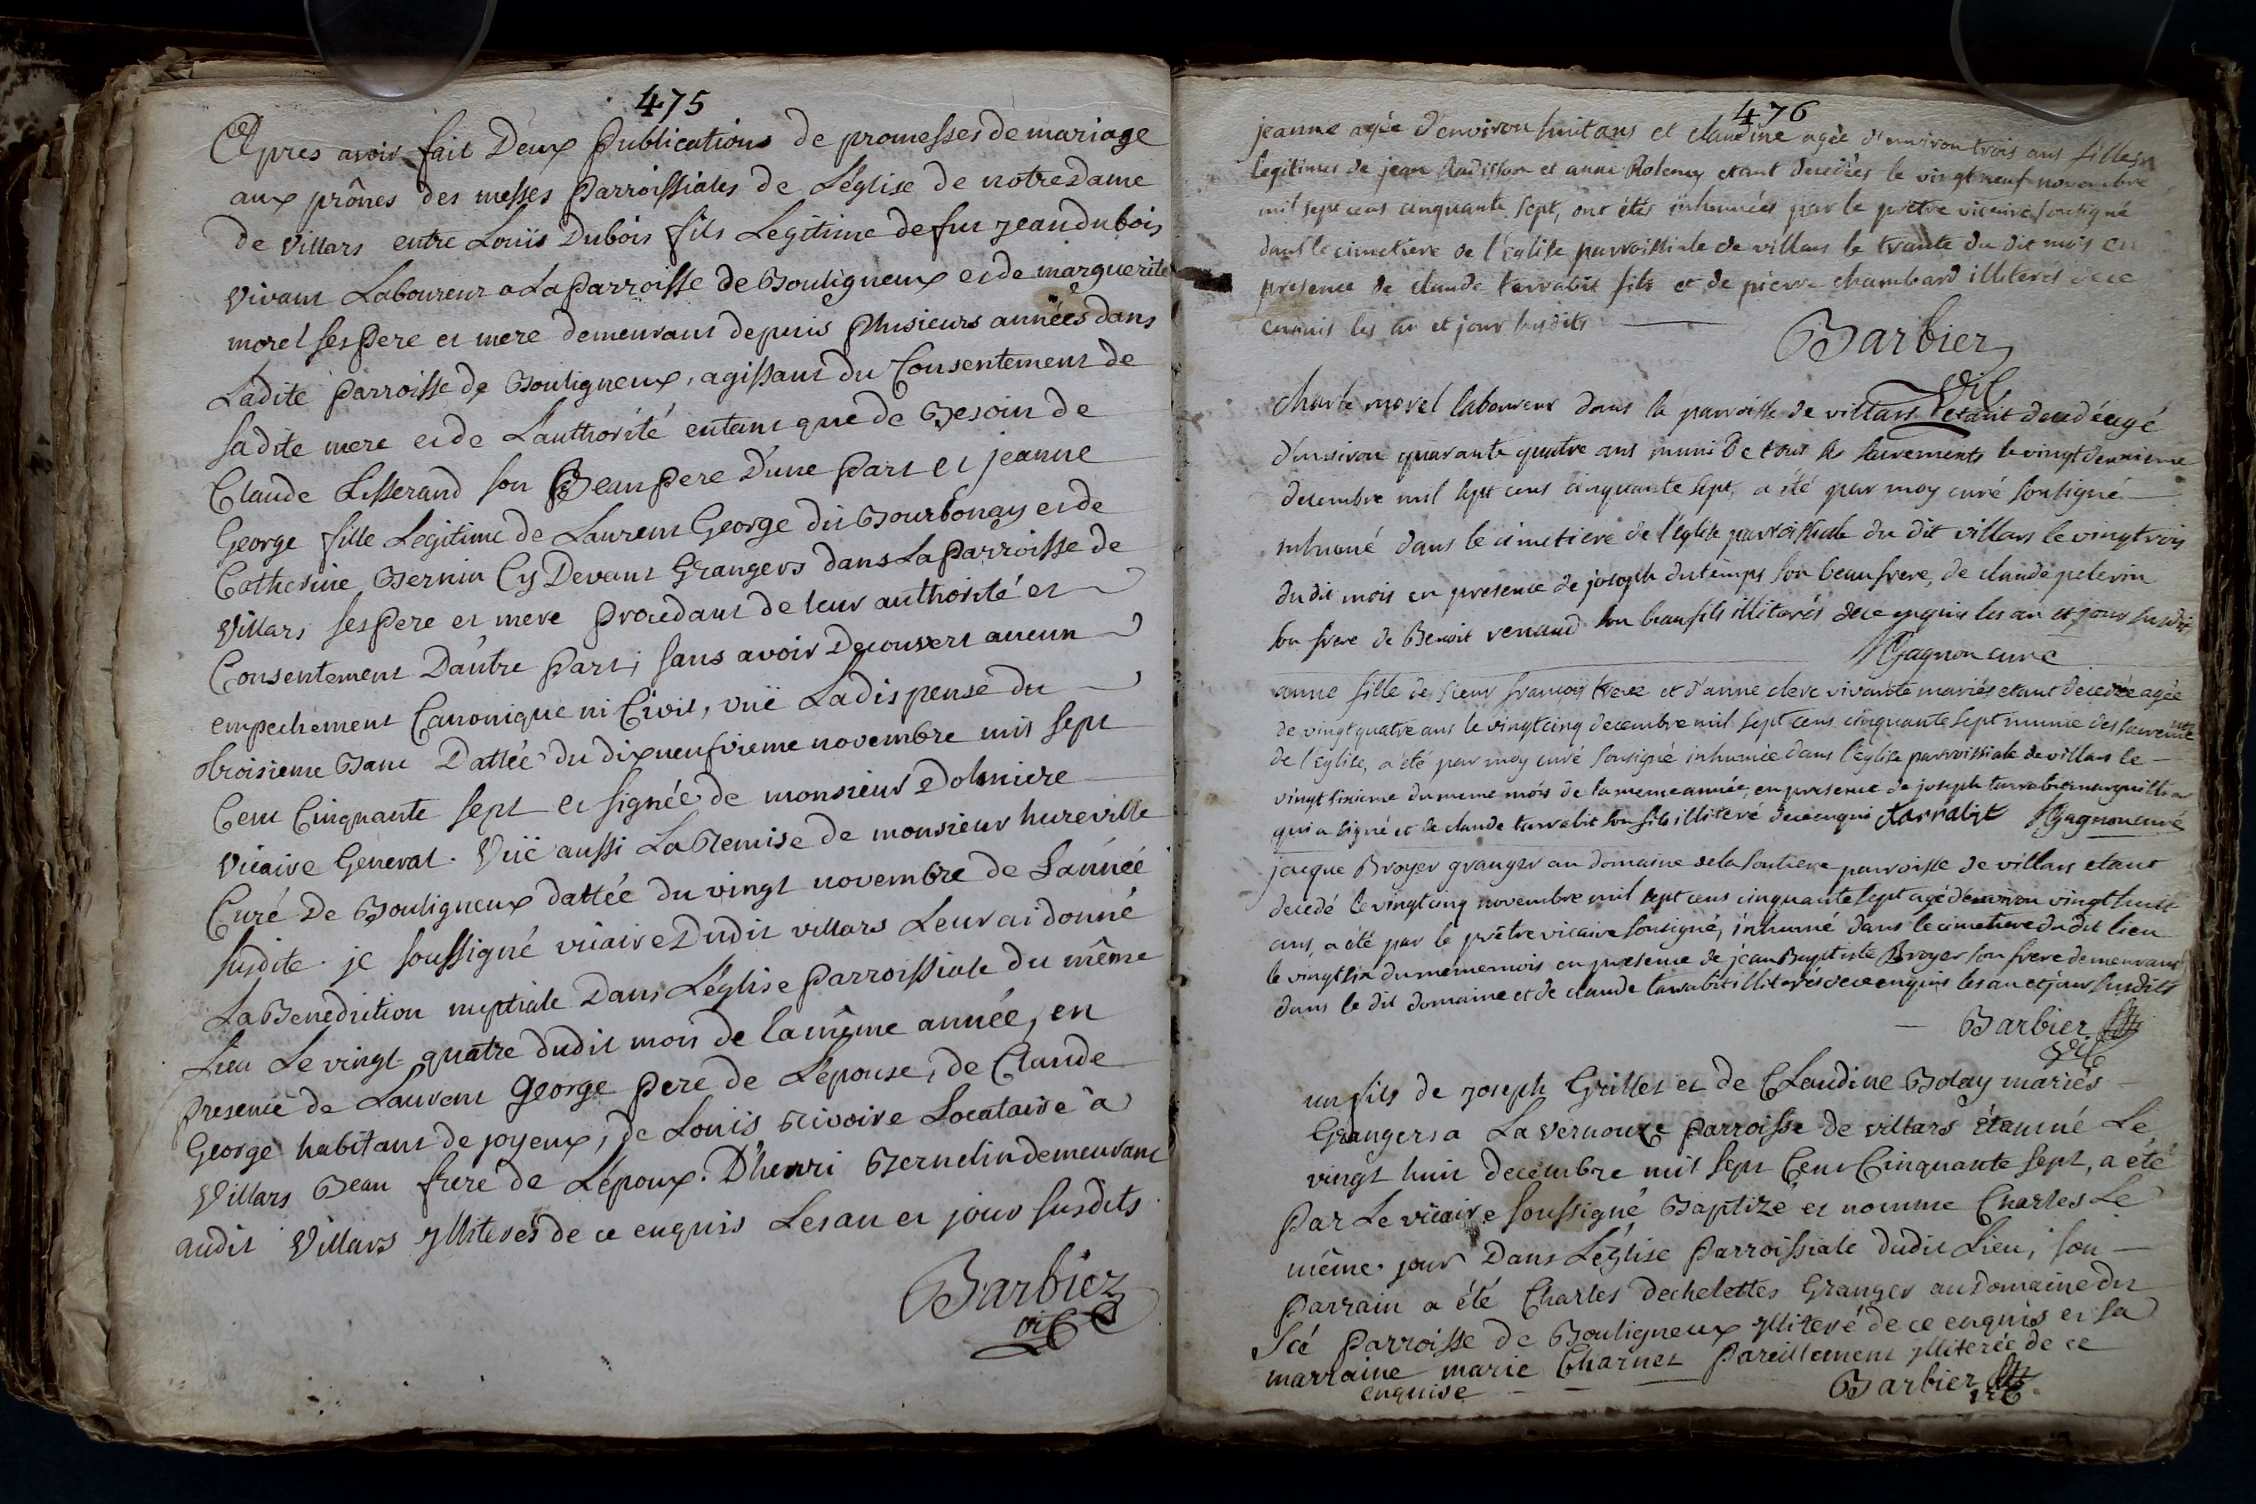 475
Apres avoir fait Deux Publications de promesses de mariage
aux prônes des messes Parroissiales de L'église de notre Dame
de Villars entre Louis Dubois fils Legitime de fut jean dubois
vivant Laboureur a La Parroisse de Bouligneux et de marguerite
morel ses Pere et mere demeurant depuis Plusieurs années dans
Ladite Parroisse de Bouligneux, agissant du Consentement de
sadite mere et de L'authorité entant que de Besoin de
Claude Lisserand son Beau Pere D'une Part et jeanne
George fille Legitime de Laurent George dit Bourbonay et de
Catherine Bernin Cy Devant Grangers dans La Parroisse de
Villars ses Pere et mere Procedant de leur authorité et
Consentement D'autre Part; sans avoir Decouvert aucun
empechement Canonique ni Civil, vuë La dispense du
troisieme Banc Dattée du dixneufvieme novembre mil sept
Cent Cinquante sept et signée de monsieur Dolmiere
Vicaire General. Vuë aussi La Remise de monsieur hureville
Curé De Bouligneux dattée du vingt novembre de L'année
susdite. je soussigné vicaire Dudit villars Leur ai donné
La Benediction nuptiale Dans L'église Parroissiale du même
Lieu Le vingt quatre dudit mois de la même année, en
Presence de Laurent George Pere de L'épouse, de Claude
George habitant de joyeux, de Louis Rivoire Locataire à
Villars Beau frere de L'époux. D'henri Bernelin demeurant
audit Villars ylliterés de ce enquis Les an et jour susdits
Barbier
vic
476
jeanne agée d'environ huit ans et claudine agée d'environ trois ans filles
legitimes de jean Radisson et anne étant decedées le vingt neuf novembre
mil sept cens cinquante sept, ont étés inhumées par le prêtre vicaire soussigné
dans le cimetiere de l'église parroissiale de villars le trante du dit mois en
presence de claude tarrabit fils et de pierre chambard illiterés de ce
enquis les an et jour susdits
Barbier
vic
charle morel laboureur dans la parroisse de villars étant decedé agé
d'environ quarante quatre ans muni de tous les sacrements le vingt deuxieme
decembre mil sept cens cinquante sept, a été par moy curé soussigné
inhumé dans le cimetiere de l'église parroissiale du dit villars le vingt trois
du dit mois en presence de joseph dutemps son beaufrere, de claude pelerin
son frere de Benoit renaud son beaufils illiterés de ce enquis les an et jour susdits
Gagnon curé
anne fille de sieur françois et d'anne clerc vivante mariés etant decedée agée
de vingt quatre ans le vingt cinq decembre mil sept cens cinquante sept munie des sacrements
de l'église, a été par moy curé soussigné inhumée dans l'église parroissiale de villars le
vingt sixieme du meme mois de la meme année, en presence de joseph tarrabit marguillier
qui a signé et de claude tarrabit son fils illiteré de ce enquis tarrabit Gagnon curé
jacque Broyer granger au domaine de la parroisse de villars etant
decedé le vingt cinq novembre mil sept cens cinquante sept agé d'environ vingt huit
ans, a été par le prêtre vicaire soussigné, inhumé dans le cimetiere du dit lieu
le vingt six du meme mois en presence de jean Baptiste Broyer son frere demeurant
dans le dit domaine et de claude tarrabit illiterés de ce enquis les an et jour susdits
Barbier
vic
un fils de joseph Grillet et de Claudine Bolay mariés
Grangers a La Vernouze Parroisse de villars étant né Le
vingt huit decembre mil sept Cent Cinquante sept, a été
Par Le vicaire soussigné Baptizé et nomme Charles Le
même jour Dans L'église Parroissiale dudit Lieu, son
Parrain a été Charles Dechelettes Granger au Domaine du
Sié Parroisse de Bouligneux ylliteré de ce enquis et sa
marraine marie Charnet Pareillement ylliterée de ce
enquise
Barbier
vic